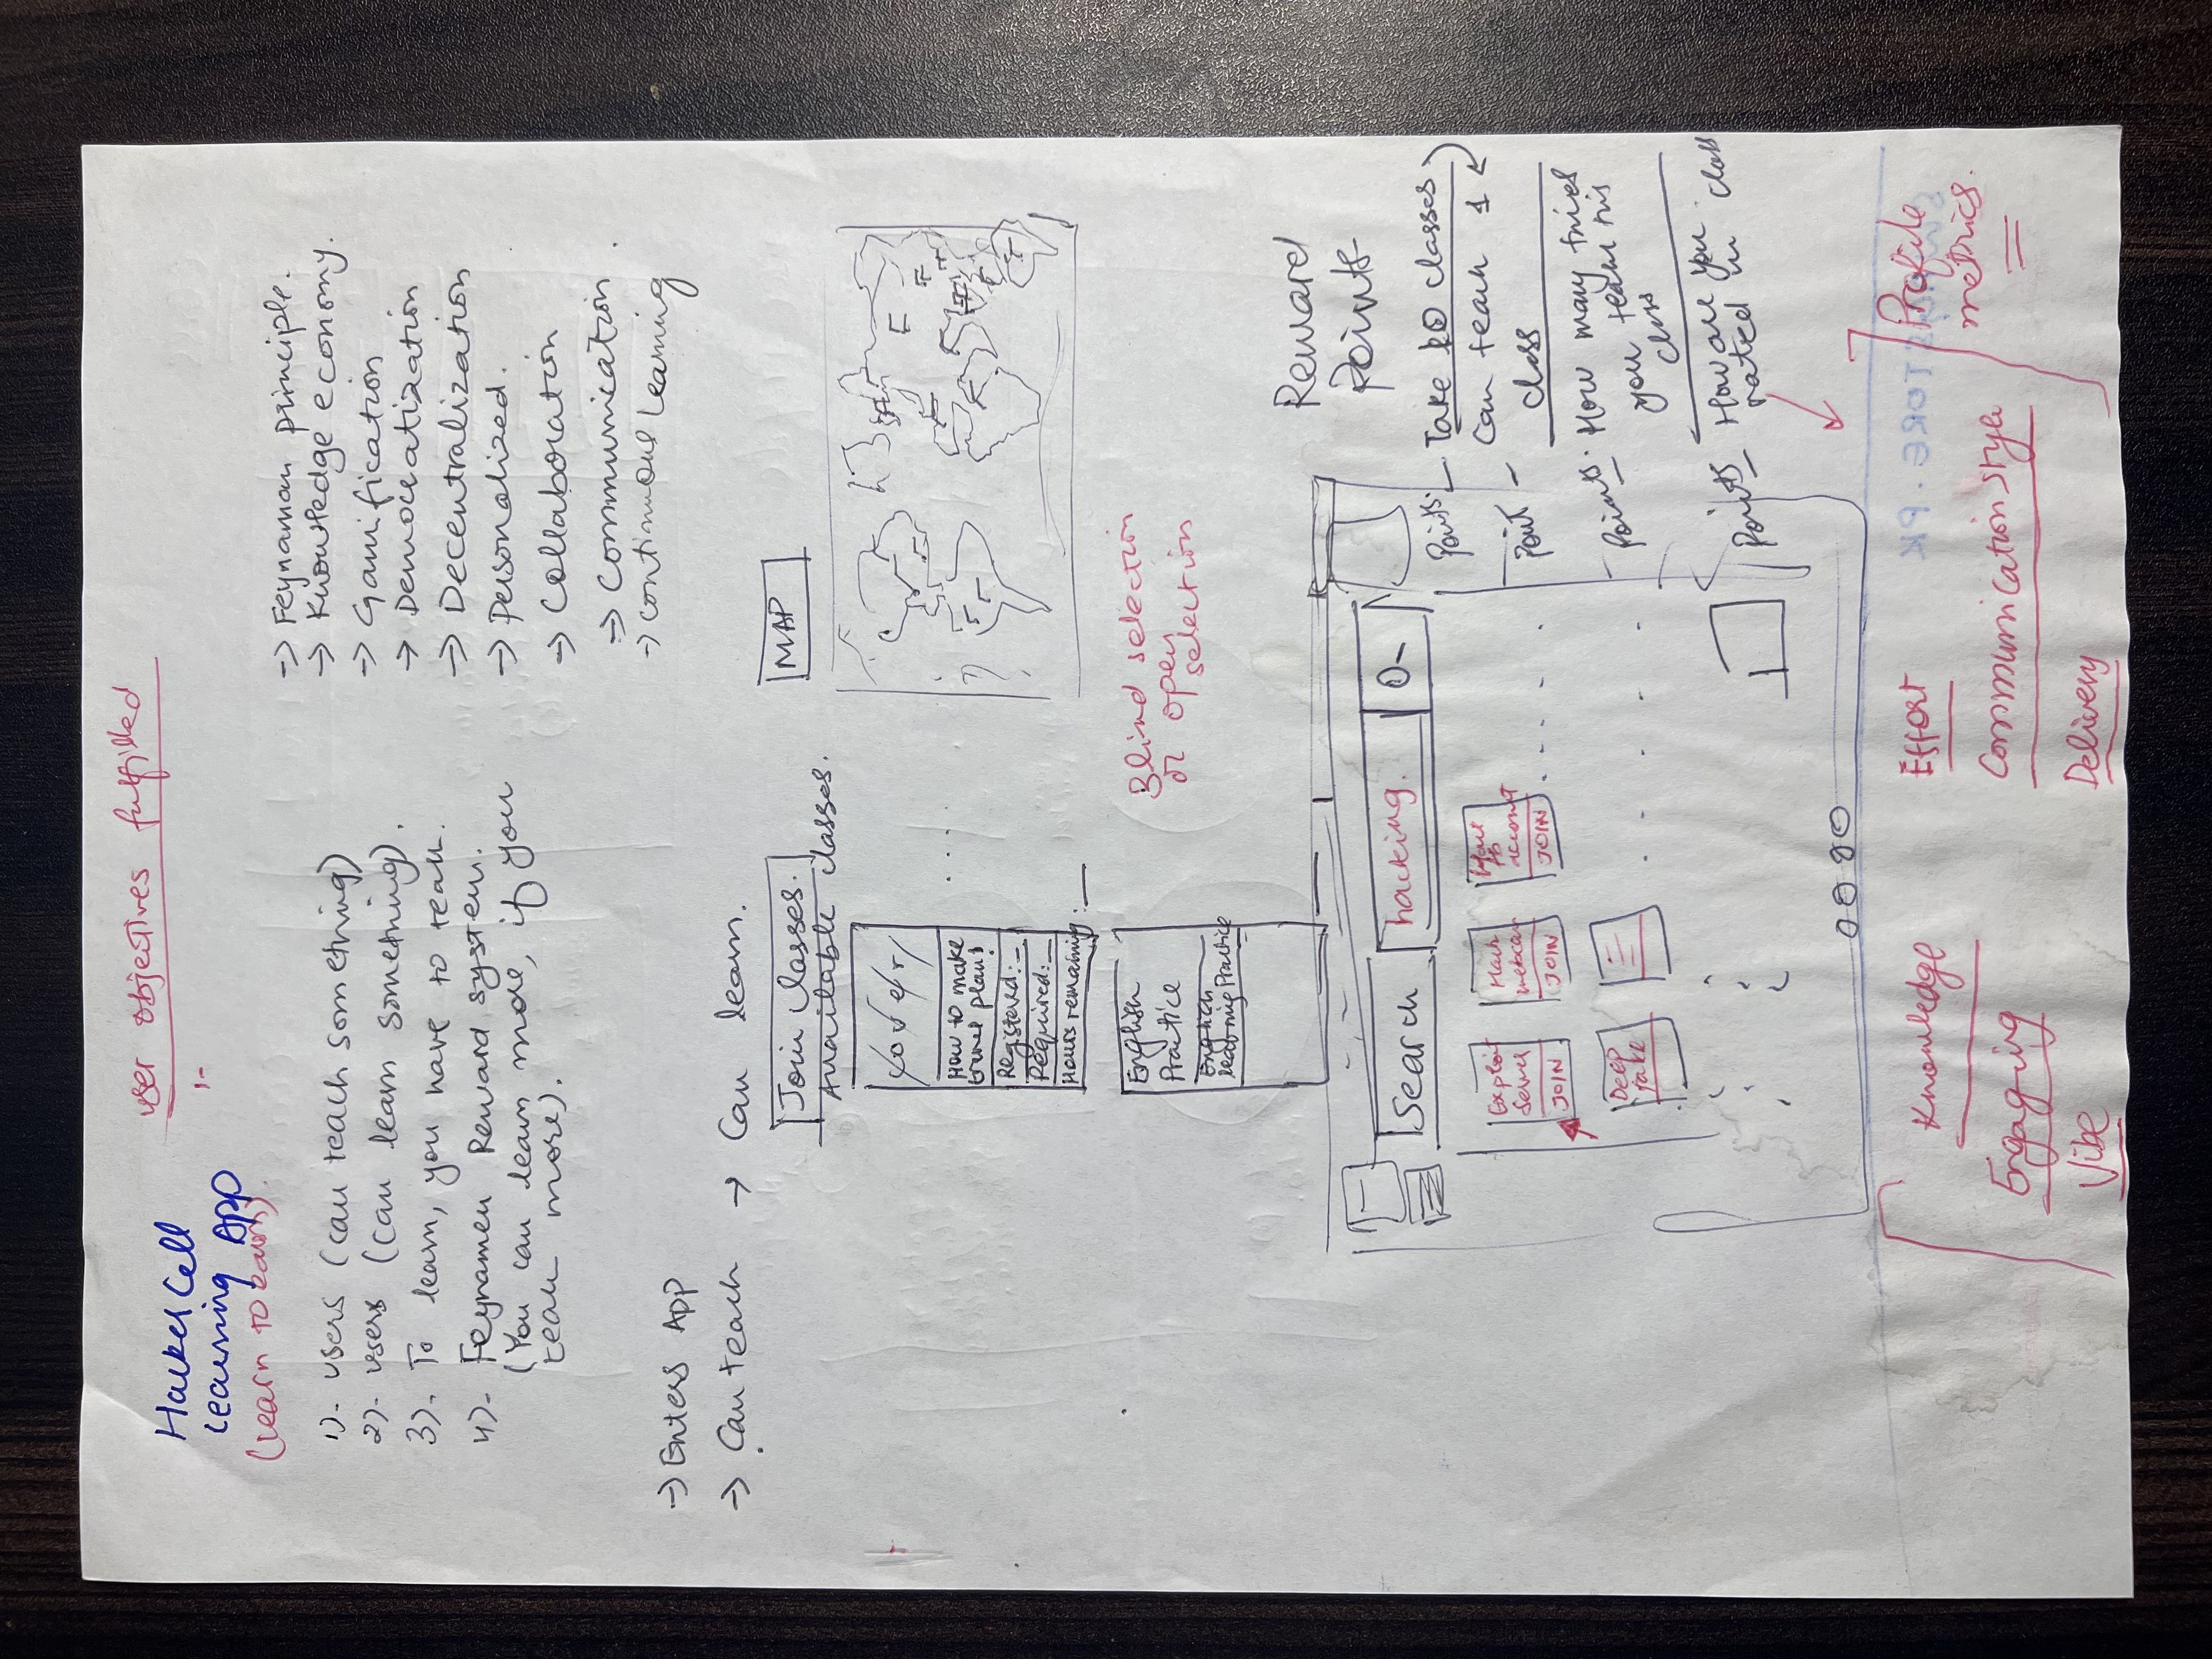 user objectives fulfilled
:-
Hacker Cell
Learning App
(Learn to Earn).
1)- users (can teach something)
2)- users (can learn something).
3)- To learn, you have to teach.
4)- Feynamen Reward system.
(You can learn more, if you
teach more).
-> Feynman principle.
-> Knowledge economy.
-> Gamification
-> Democratization
-> Decentralization
-> Personalized.
-> Collaboration
-> Communication
-> Continuous learning
-> Enters App
-> Can teach -> Can learn.
Join Classes.
Available classes.
How to make
travel plans?
Registered:-
Required:-
Hours remaining:-
English
Practice
English
learning Practice
MAP
Blind selection
or open
selection
Reward
Points
Search
hacking.
Exploit
Server
JOIN
Hack
webcam
JOIN
Hack
fb
account
JOIN
Deep
fake
Points - Take 10 classes
Point - Can teach 1
class
Points - How many times
you teach this
class
Points - How are you
rated in class
Profile
metrics.
Knowledge
Effort
Engaging
Communication style
Vibe
Delivery
STORE.PK